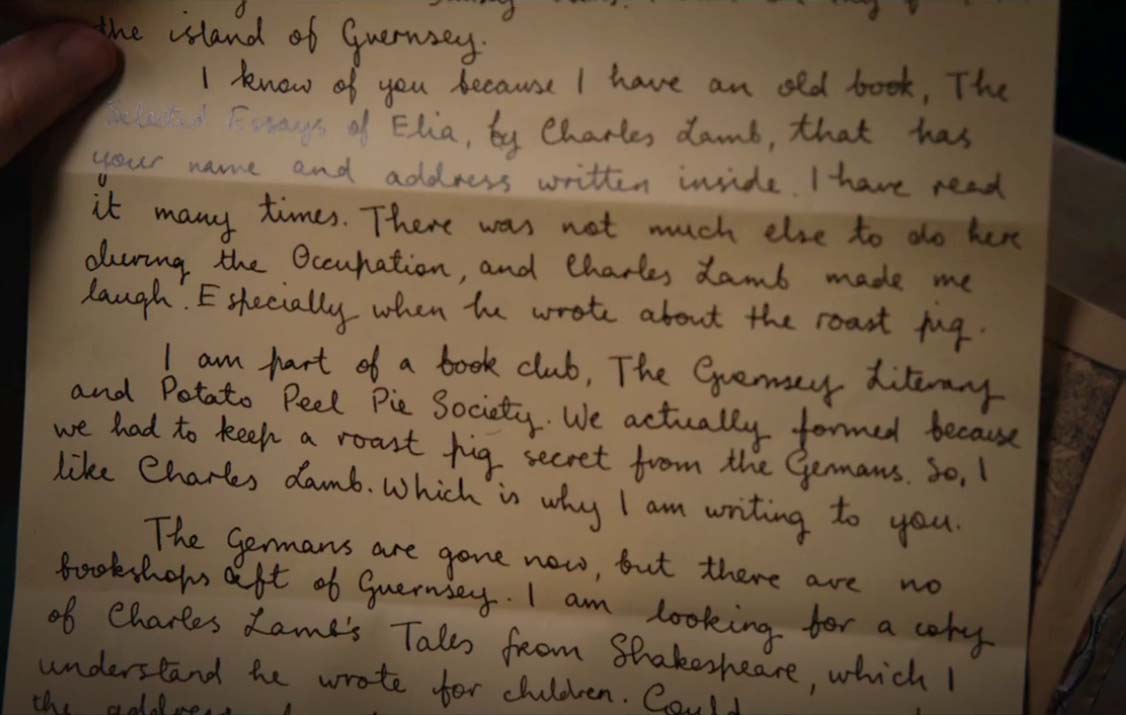 the island of Guernsey.
I know of you because I have an old book, The
Selected Essays of Elia, by Charles Lamb, that has
your name and address written inside. I have read
it many times. There was not much else to do here
during the Occupation, and Charles Lamb made me
laugh. Especially when he wrote about the roast pig.
I am part of a book club, The Guernsey Literary
and Potato Peel Pie Society. We actually formed because
we had to keep a roast pig secret from the Germans. So, I
like Charles Lamb. Which is why I am writing to you.
The Germans are gone now, but there are no
bookshops left of Guernsey. I am looking for a copy
of Charles Lamb's Tales from Shakespeare, which I
understand he wrote for children. Could
the address